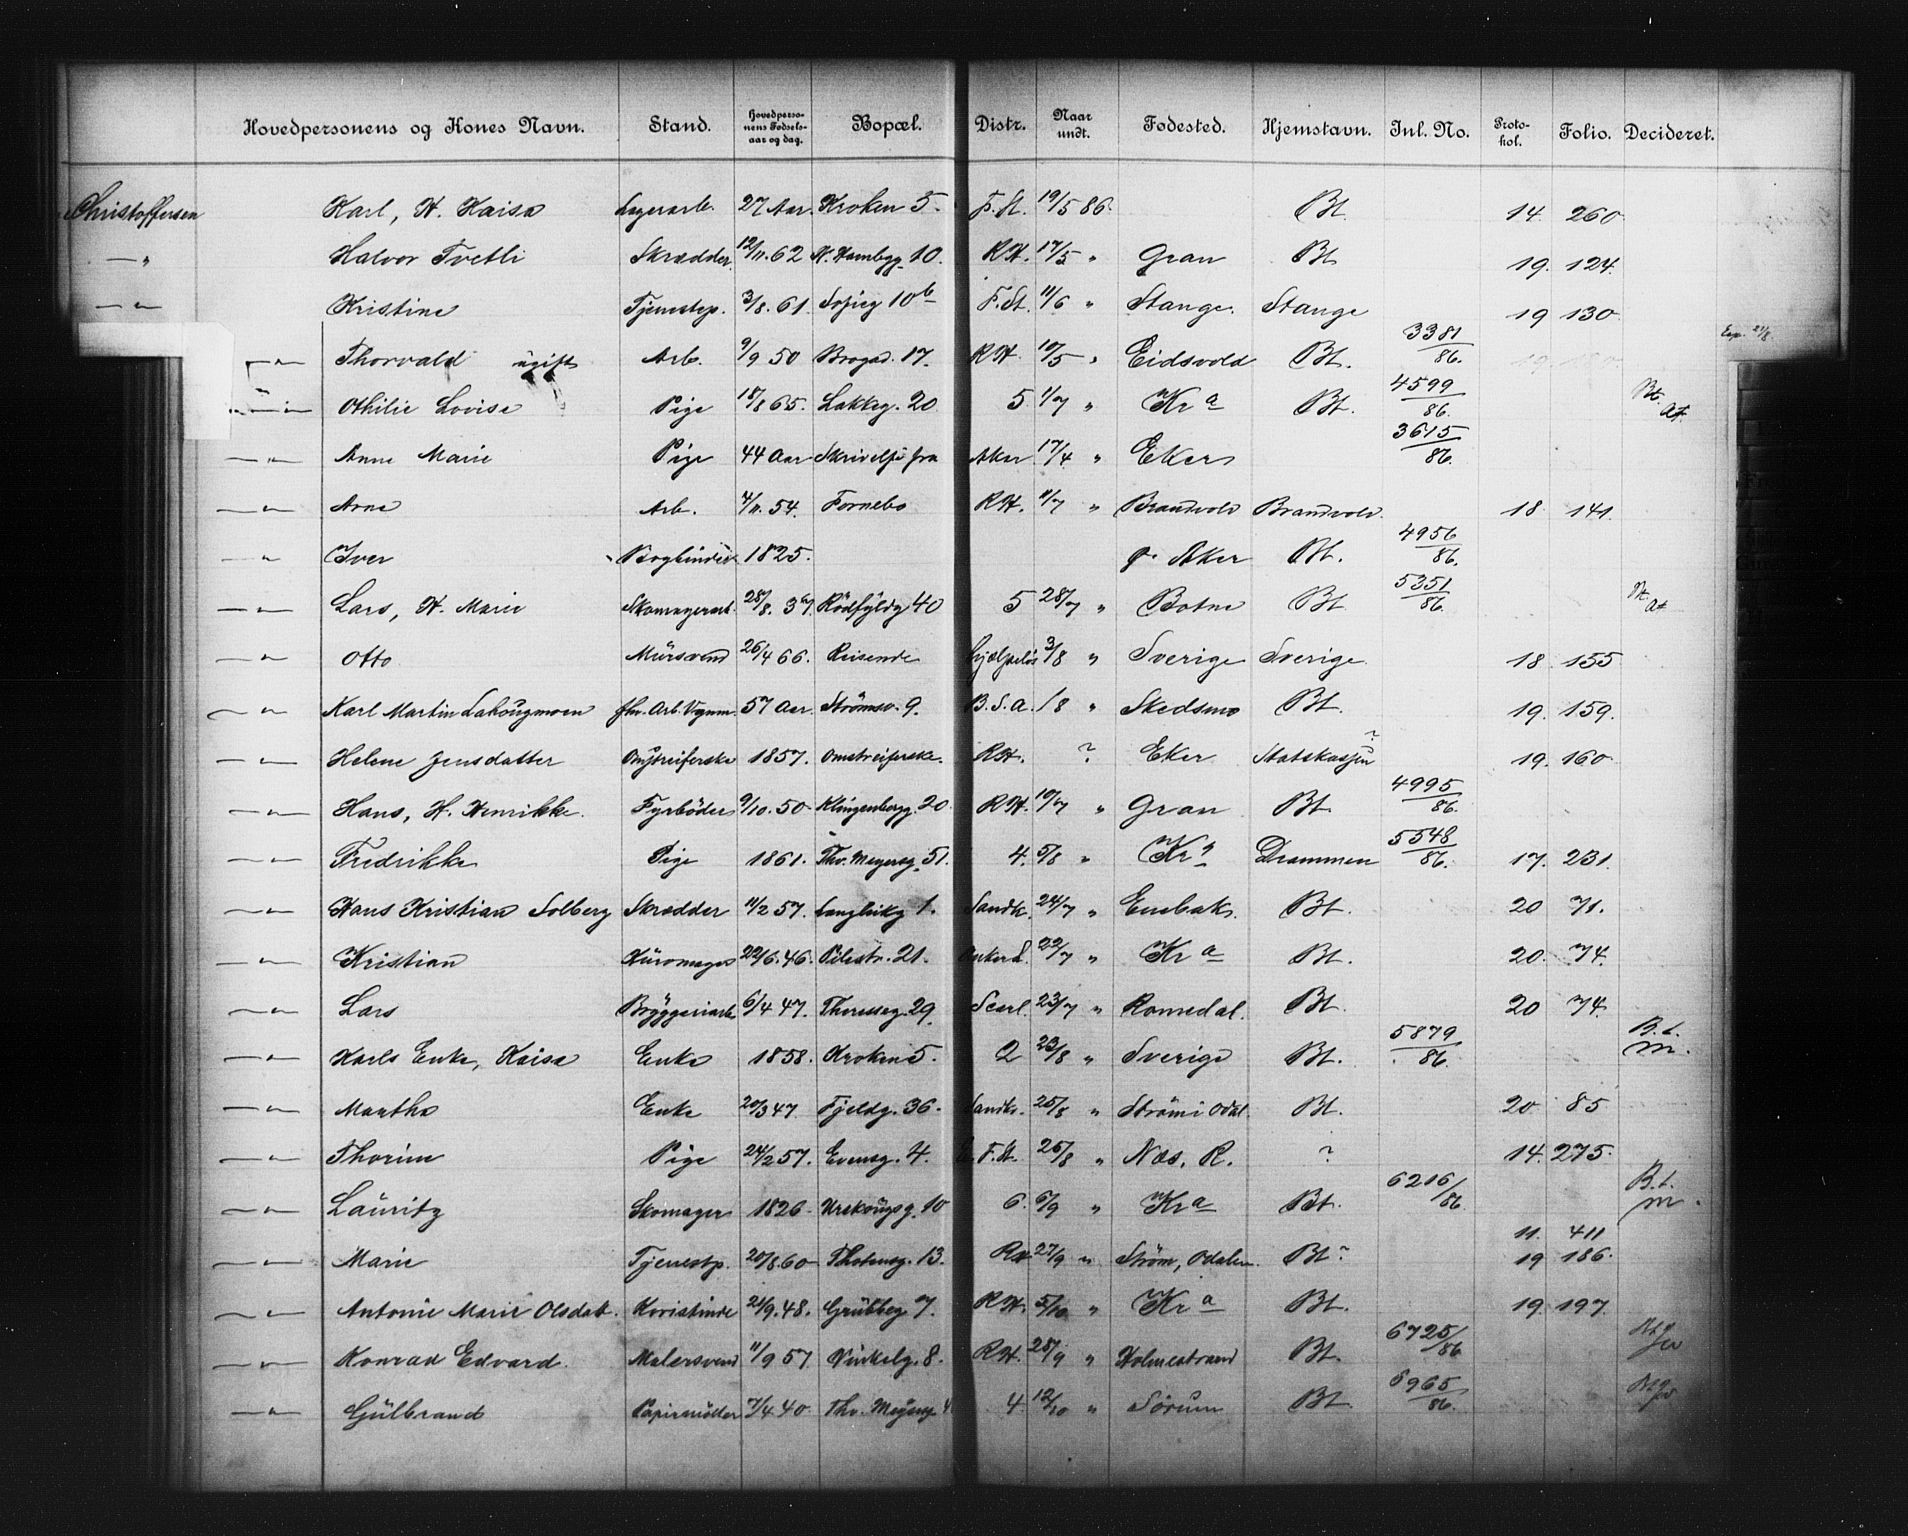 Hovedpersonens og Kones Navn. Stand. Hovedpersonens Fødselsaar og dag. Bopæl. Distr. Naar undt. Fødested. Hjemstavn. Inl. No. Protokol. Folio. Decideret.
Christoffersen Karl, H. Kaisa Lagerarb. 27 Aar. Kroken 5. F.St. 19/5 86. Bt. 14. 260.
—„ Halvor Tvetli Skrædder. 12/11. 62 N. Hambgg. 10. RH. 17/5 „ Gran Bt 19. 124.
—„— Kristine Tjenestep. 3/8. 61. Sofieg 10b F.St. 11/6 „ Stange. Stange 19 130.
—„— Thorvald ugift Arb. 9/9 50 Brogad. 17. RH. 10/5 „ Eidsvold Bt. 3381/86. Exp. 21/8.
—„— Othilie Lovise Pige 18/8 65. Lakkeg. 20 5. 1/7 „ Kra Bt. 4599/86. Bt. at.
—„— Anne Marie Pige 44 Aar Skrivelse fra Aker 17/4 „ Eker 3615/86.
—„— Arne Arb. 4/11. 54. Fornebo RH. 11/7 „ Brandvold Brandvold. 18 141.
„ Iver Bogbinder 1825. Aker Bt. 4956/86.
—„— Lars, H. Marie Skomagerarb. 28/8. 37. Rödfyldg 40 5 28/7 „ Botne Bt 5351/86. Bt. at
—„— Otto Mürsvend 26/4 66. Reisende hjælpeløs 3/8 „ Sverige Sverige 18. 155
—„— Karl Martin Lakougmoen fhv. Arb. Vognm. 57 Aar. Strömsv. 9. B.S.a. /8 „ Skedsmo Bt. 19. 159.
—„— Helene Jensdatter Omstreiferske 1857. Omstreiferske. RH. ? Eker Statskassen ? 19. 160.
—„— Hans, H. Henrikke. Fyrböder 9/10. 50. Klingenbergg. 20. RH. 10/7 „ Gran Bt 4995/86.
—„— Fredrikke Pige 1861. Thv. Meyersg. 51. 4. 5/8 „ Kra Drammen 5548/86. 17. 231.
—„— Hans Kristian Solberg Skrædder 11/2 57. Langleikg 1. Sandb. 24/7 „ Enebak. Bt. 20 71.
—„— Kristian 22/6. 46. Pilestr. 21. Ankerl. 22/7 „ Kra Bt. 20. 74.
—„— Lars Bryggeriarb 6/4 47. Thereseg. 29. 23/7 „ Romedal. Bt. 20 74.
—„— Karls Enke, Kaisa Enke 1858. Kroken 5. 2 23/8 „ Sverige Bt. 5879/86. B.t. m.
—„— Martha Enke 20/3 47. Fjeldg. 36. Sandb. 25/8 „ Ström i Odal. Bt. 20 85
—„— Thorine Pige 24/2 57. Evensg. 4. F.St. 26/8 „ Næs. R. ? 14. 275.
—„— Lauritz Skomager 1826. 10 6. 6/9 „ Kra Bt. 6216/86. B.t. m.
11. 411
—„— Marie Tjenestp. 20/8. 60 Thotensg. 13. RH 27/9 „ Ström, Odalen. Bt ? 19 186.
—„— Antonie Marie Olsdat. Koristinde 21/9. 48. Grübbeg 7. RH. 5/10 „ Kra Bt. 19. 197.
—„— Konrad Edvard. Malersvend 11/9 57 Vinkelg. 8. RH. 28/9 „ Holmestrand Bt. 6725/86
—„— Gülbrand Papirmöller 7/4. 40. Thv. Meyersg. 4 4. 12/10 „ Sörum Bt. 6965/86.